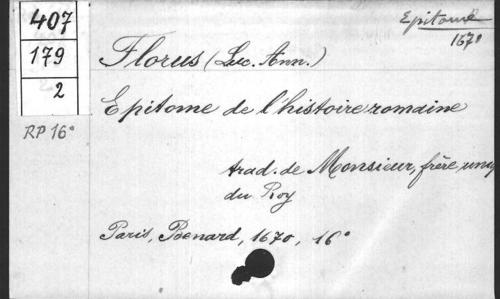 407
179
2
RP 16°
Epitome
1670
Florus (Luc. Ann.)
Epitome de l'histoire romaine
trad. de Monsieur, frère
du Roy
Paris, Benard, 1670, 16°